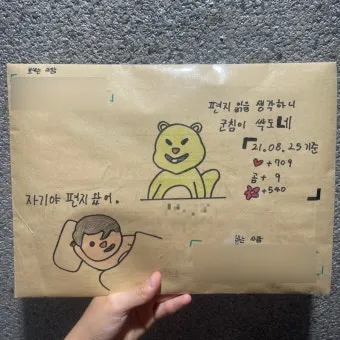 보내는 사람
편지 읽을 생각하니
군침이 싹도네
21.08.25기준
+709
곰+ 9
+540
자기야 편지왔어.
받는 사람